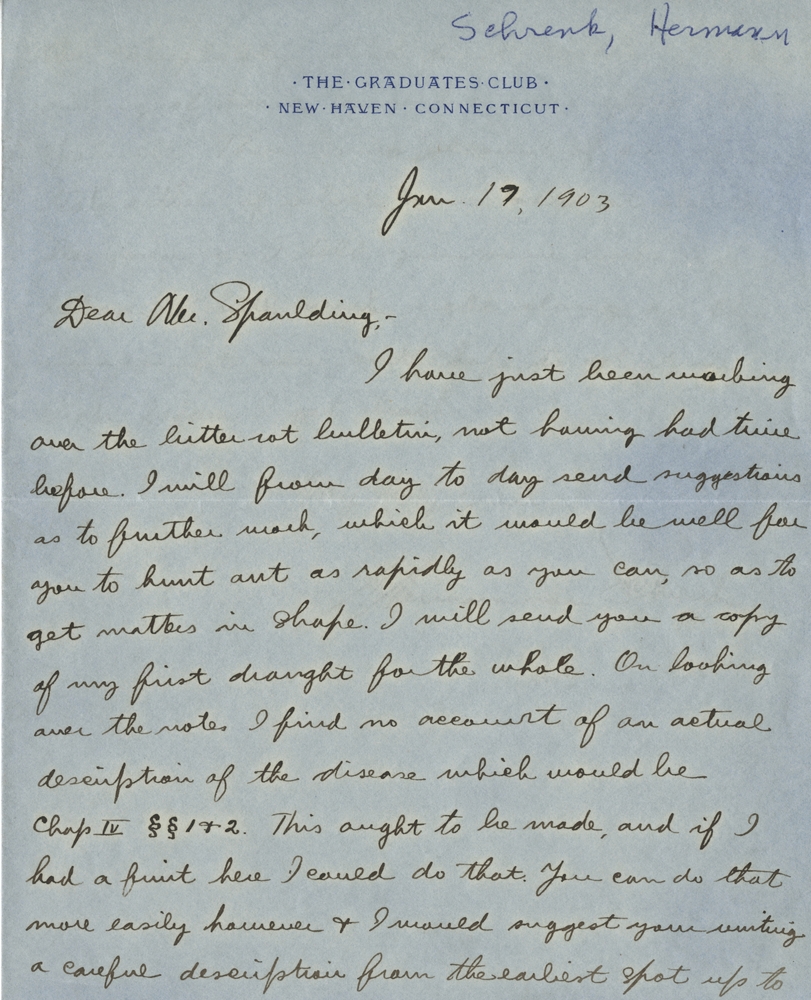 Schrenk, Hermann
·THE·GRADUATES·CLUB·
·NEW·HAVEN·CONNECTICUT·
Jan. 17, 1903
Dear Mr. Spaulding,-
I have just been working
over the bitter rot bulletin, not having had time
before. I will from day to day send suggestions
as to further work, which it would be well for
you to hunt out as rapidly as you can, so as to
get matters in shape. I will send you a copy
of my first draught for the whole. On looking
over the notes I find no account of an actual
description of the disease which would be
Chap IV §§ 1 & 2. This ought to be made, and if I
had a fruit here I could do that. You can do that
more easily however & I would suggest your writing
a careful description from the earliest spot up to